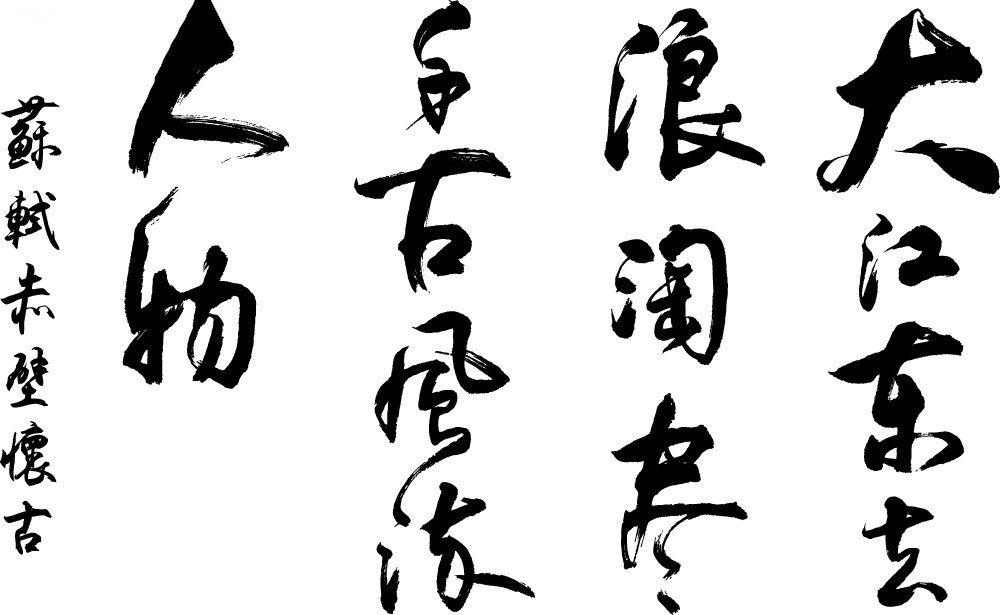 大江東去
浪淘盡
千古風流
人物
蘇軾赤壁懷古